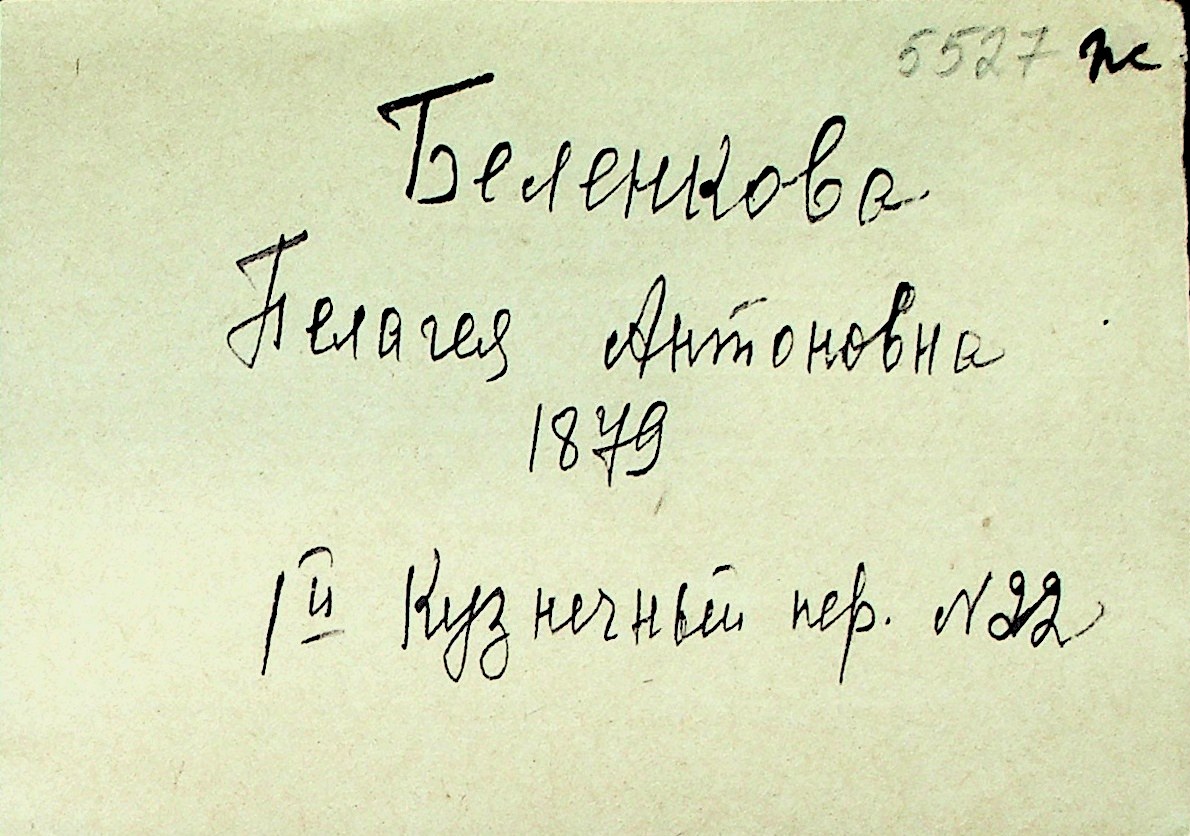 5527 ж
Беленкова
Пелагея Антоновна
1879
1й Кузнечный пер. N22